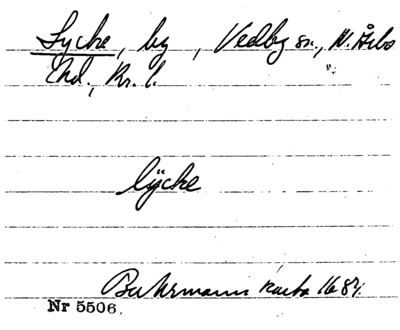 Lycke, by, Vedby sn., N. Åsbo
Hd., Kr. l.
lÿcke
Buhrmann karta 1684.
Nr 5506.